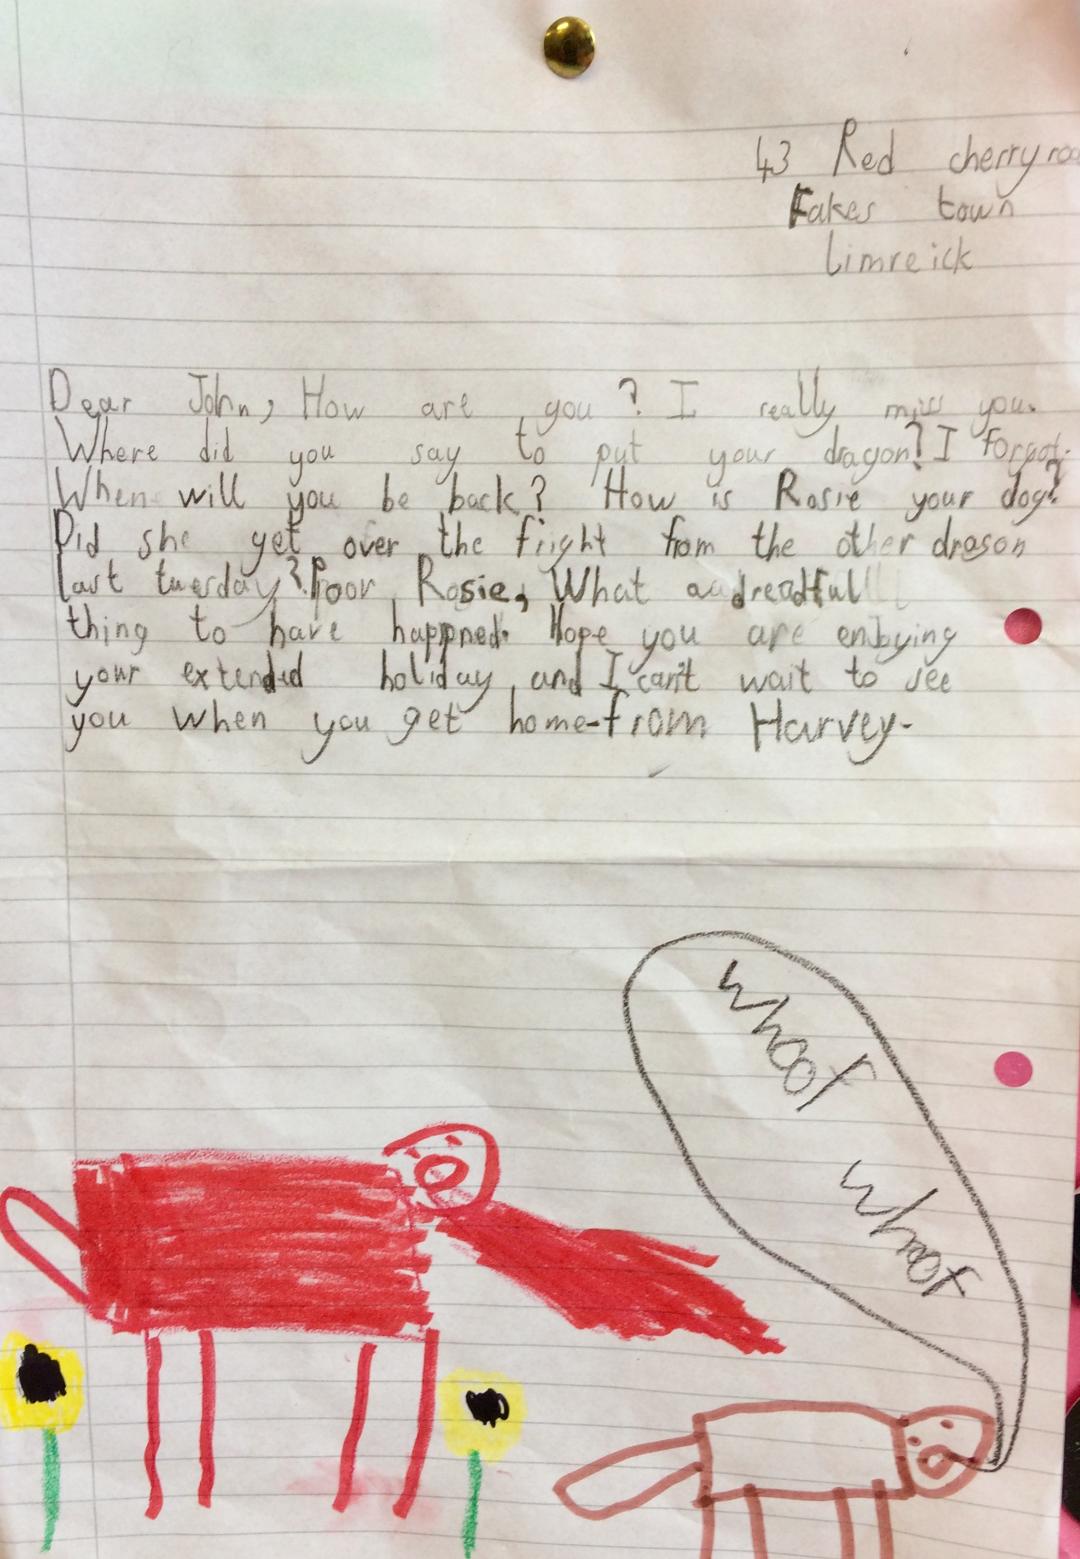 43 Red cherry roa
Fakes town
Limreick
Dear John, How are you? I really miss you.
Where did you say to put your dragon? I forgot.
When will you be back? How is Rosie your dog?
Did she get over the fright from the other dragon
last tuesday? Poor Rosie, What a dreadful
thing to have happned. Hope you are enjoying
your extended holiday, and I can't wait to see
you when you get home-from Harvey-
whoof
whoof